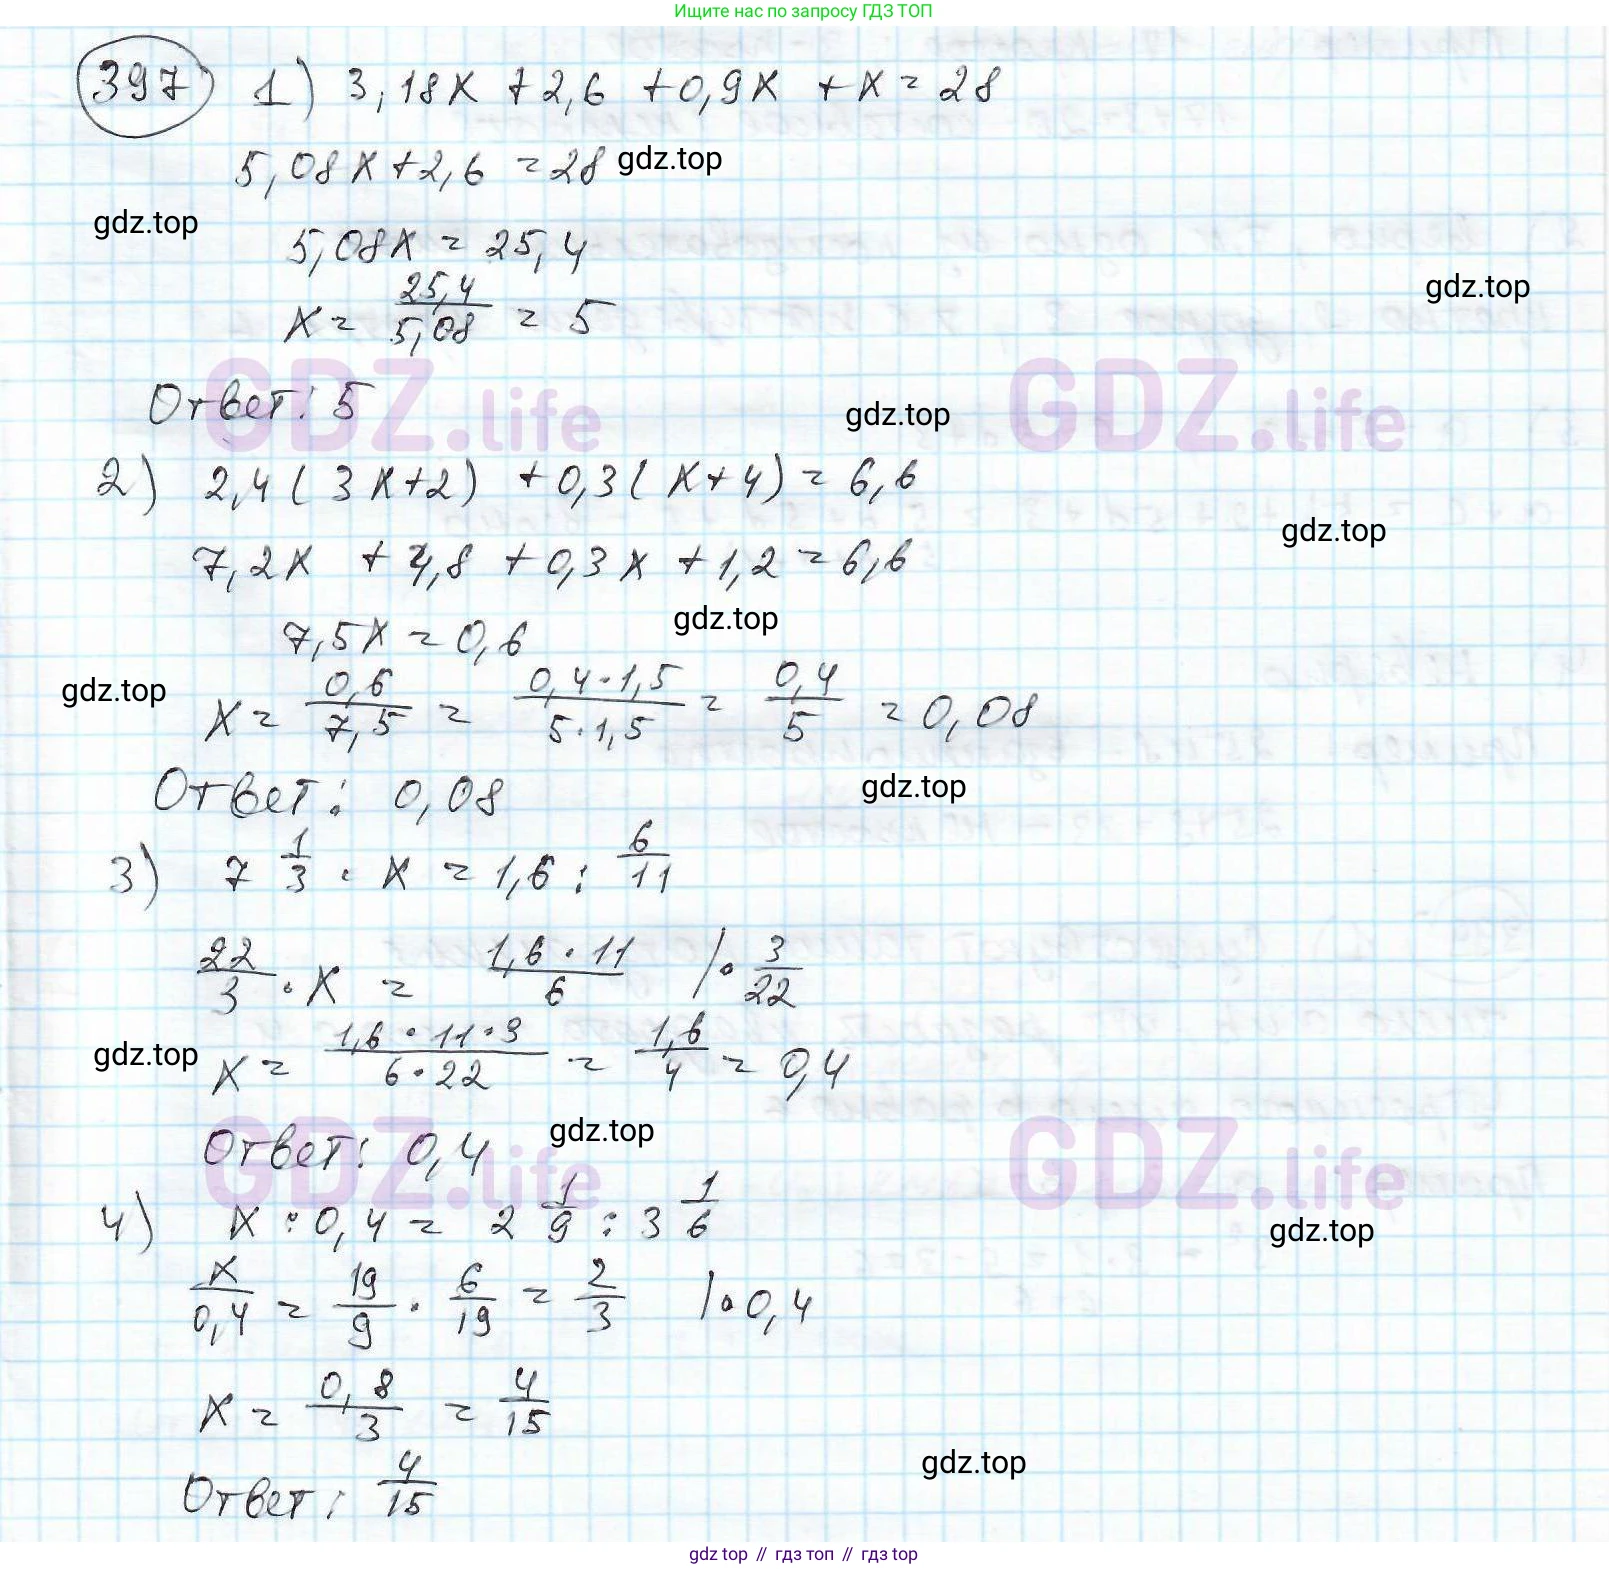 Ищите нас по запросу ГДЗ ТОП
397 1) 3,18x + 2,6 + 0,9x + x = 28
5,08x + 2,6 = 28 gdz.top
gdz.top
5,08x = 25,4
gdz.top
x = 25,4/5,08 = 5
GDZ.life GDZ.life
Ответ: 5 gdz.top
2) 2,4(3x+2) + 0,3(x+4) = 6,6
gdz.top
7,2x + 4,8 + 0,3x + 1,2 = 6,6
gdz.top
7,5x = 0,6
gdz.top
x = 0,6/7,5 = 0,4·1,5/5·1,5 = 0,4/5 = 0,08
Ответ: 0,08 gdz.top
3) 7 1/3 · x = 1,6 : 6/11
22/3 · x = 1,6·11/6 |· 3/22
gdz.top x = 1,6·11·3/6·22 = 1,6/4 = 0,4
Ответ: 0,4 gdz.top
GDZ.life GDZ.life
4) x : 0,4 = 2 1/9 : 3 1/6 gdz.top
x/0,4 = 19/9 · 6/19 = 2/3 |· 0,4
x = 0,8/3 = 4/15
gdz.top
Ответ: 4/15
gdz top // гдз топ // гдз top